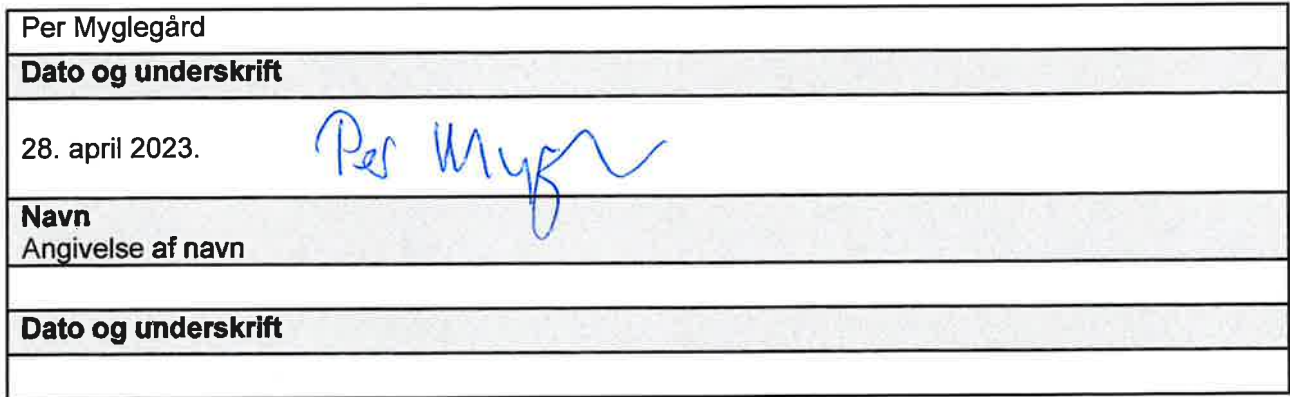 Per Myglegård
Dato og underskrift
28. april 2023.
Per
Navn
Angivelse af navn
Dato og underskrift